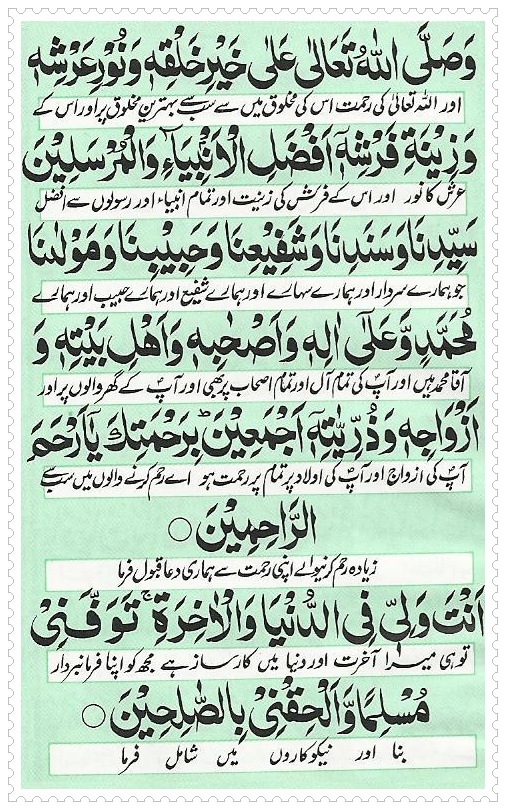 وَصَلَّى اللّٰهُ تَعَالٰى عَلٰى خَيْرِ خَلْقِهٖ وَنُوْرِ عَرْشِهٖ
اور اللہ تعالیٰ کی رحمت اس کی مخلوق میں سے سب سے بہترین مخلوق پر اور اس کے
وَزِيْنَةِ فَرْشِهٖٓ اَفْضَلِ الْاَنْۢبِيَآءِ وَالْمُرْسَلِيْنَ
عرش کا نور اور اس کے فرش کی زینت اور تمام انبیاء اور رسولوں سے افضل
سَيِّدِنَا وَسَنَدِنَا وَشَفِيْعِنَا وَحَبِيْبِنَا وَمَوْلٰىنَا
جو ہمارے سردار اور ہمارے سہارے اور ہمارے شفیع اور ہمارے حبیب اور ہمارے
مُحَمَّدٍ وَّعَلٰٓى اٰلِهٖ وَاَصْحٰبِهٖ وَاَهْلِ بَيْتِهٖ وَ
آقا محمد ہیں اور آپؐ کی تمام آل اور تمام اصحاب پر بھی اور آپؐ کے گھر والوں پر اور
اَزْوَاجِهٖ وَذُرِّيّٰتِهٖٓ اَجْمَعِيْنَ ؕ بِرَحْمَتِكَ يَآ اَرْحَمَ
آپؐ کی ازواج اور آپؐ کی اولاد پر تمام پر رحمت ہو اے رحم کرنے والوں میں سب سے
الرَّاحِمِيْنَ ○
زیادہ رحم کرنیوالے اپنی رحمت سے ہماری دعا قبول فرما
اَنْتَ وَلِیّٖ فِی الدُّنْيَا وَالْاٰخِرَةِ ۚ تَوَفَّنِیْ
تو ہی میرا آخرت اور دنیا میں کارساز ہے مجھ کو اپنا فرمانبردار
مُسْلِمًا وَّاَلْحِقْنِیْ بِالصّٰلِحِيْنَ ○
بنا اور نیکوکاروں میں شامل فرما